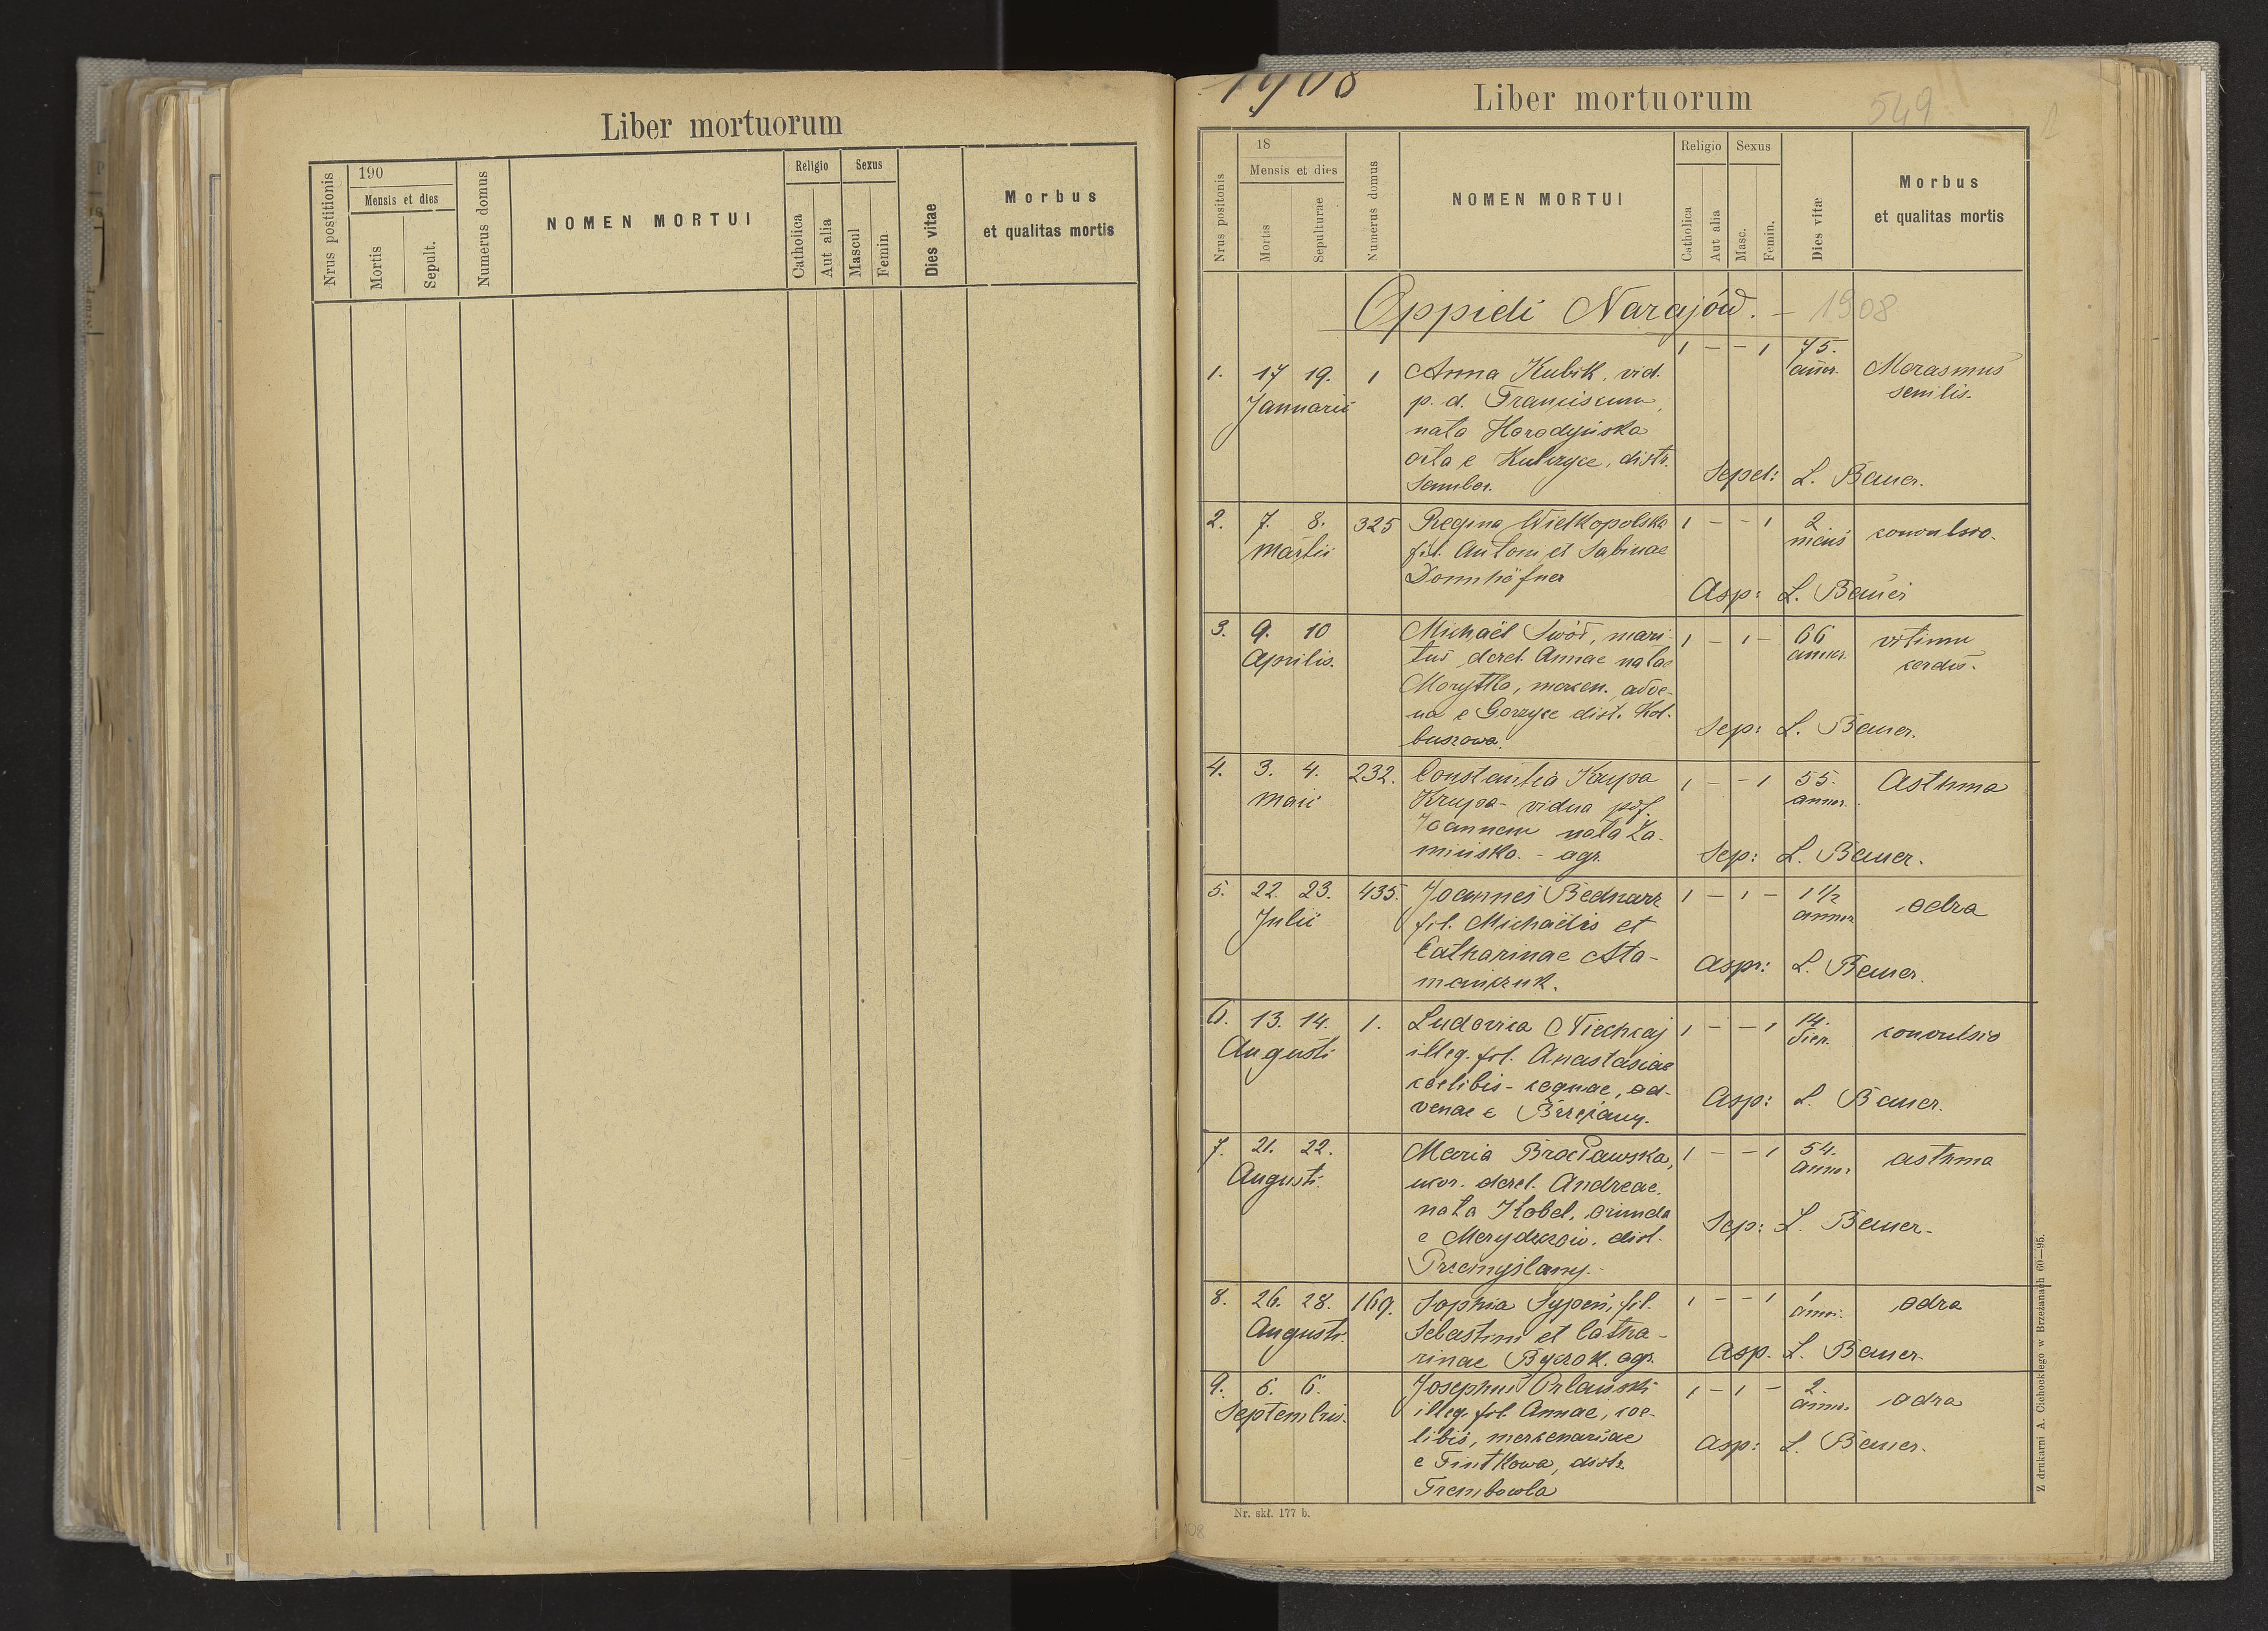 Liber mortuorum
Nrus postitionis
190
Mensis et dies
Mortis
Sepult.
Numerus domus
NOMEN MORTUI
Religio
Catholica
Aut alia
Sexus
Mascul
Femin.
Dies vitae
Morbus
et qualitas mortis
1908
Liber mortuorum
549
Nrus positonis
18
Mensis et dies
Mortis
Sepulturae
Numerus domus
NOMEN MORTUI
Religio
Catholica
Aut alia
Sexus
Masc.
Femin.
Dies vitæ
Morbus
et qualitas mortis
Oppidi Narajów. - 1908
1. 17 19. 1 Anna Kubik, vid. 1 - - 1 75. Marasmus
Januarii p. d. Franciscum, annor. senilis.
nata Horodyńska
orta e Kulczyce, distr.
Sambor. Sepel: L. Bauer.
2. 7. 8. 325 Regina Wielkopolska 1 - - 1 2 convulsio.
Martii fil. Antoni et Sabinae mens
Donnhöfner
Asp: L. Bauer
3. 9. 10 Michaël Swód, mari- 1 - 1 - 66 vitium
Aprilis. tus derel. Annae natae annor. cordis.
Marytka, mercen. adve-
na e Gorzyce dist. Kol-
buszowa. Sep: L. Bauer.
4. 3. 4. 232. Constantia Krupa 1 - - 1 55. Asthma
Maii Krupa - vidua annor.
Joannem nata Za-
mińska. - agr. Sep: L. Bauer.
5. 22. 23. 435. Joannes Bednarz 1 - 1 - 1 1/2 odra
Julii fil. Michaëlis et annor
Catharinae Ata-
mańczuk. Aspr: L. Bauer.
6. 13. 14. 1. Ludovica Niechcaj 1 - - 1 14. convulsio
Augusti illeg. fil. Anastasiae dier.
coelibis - coquae, ad-
venae e Brzeżany. Asp: L. Bauer.
7. 21. 22. Maria Bracławska, 1 - - 1 54. asthma
Augusti. uxor. derel. Andreae. annor
nata Kobel, oriunda
e dist. Sep: L. Bauer.
Przemyślany.
8. 26. 28. 169. Sophia Sypeń, fil. 1 - - 1 1 odra
Augusti. Sebastini et Catha- anni.
rinae Byczok. agr. Asp. L. Bauer.
9. 5. 6. Josephus Orlański 1 - 1 - 2. odra
Septembris. illeg. fil. Annae, coe- annor.
libis, mercenariae
e distr. Asp: L. Bauer.
Trembowla
Nr. skł. 177 b.
Z drukarni A. Cichockiego w Brzeżanach 60—95.